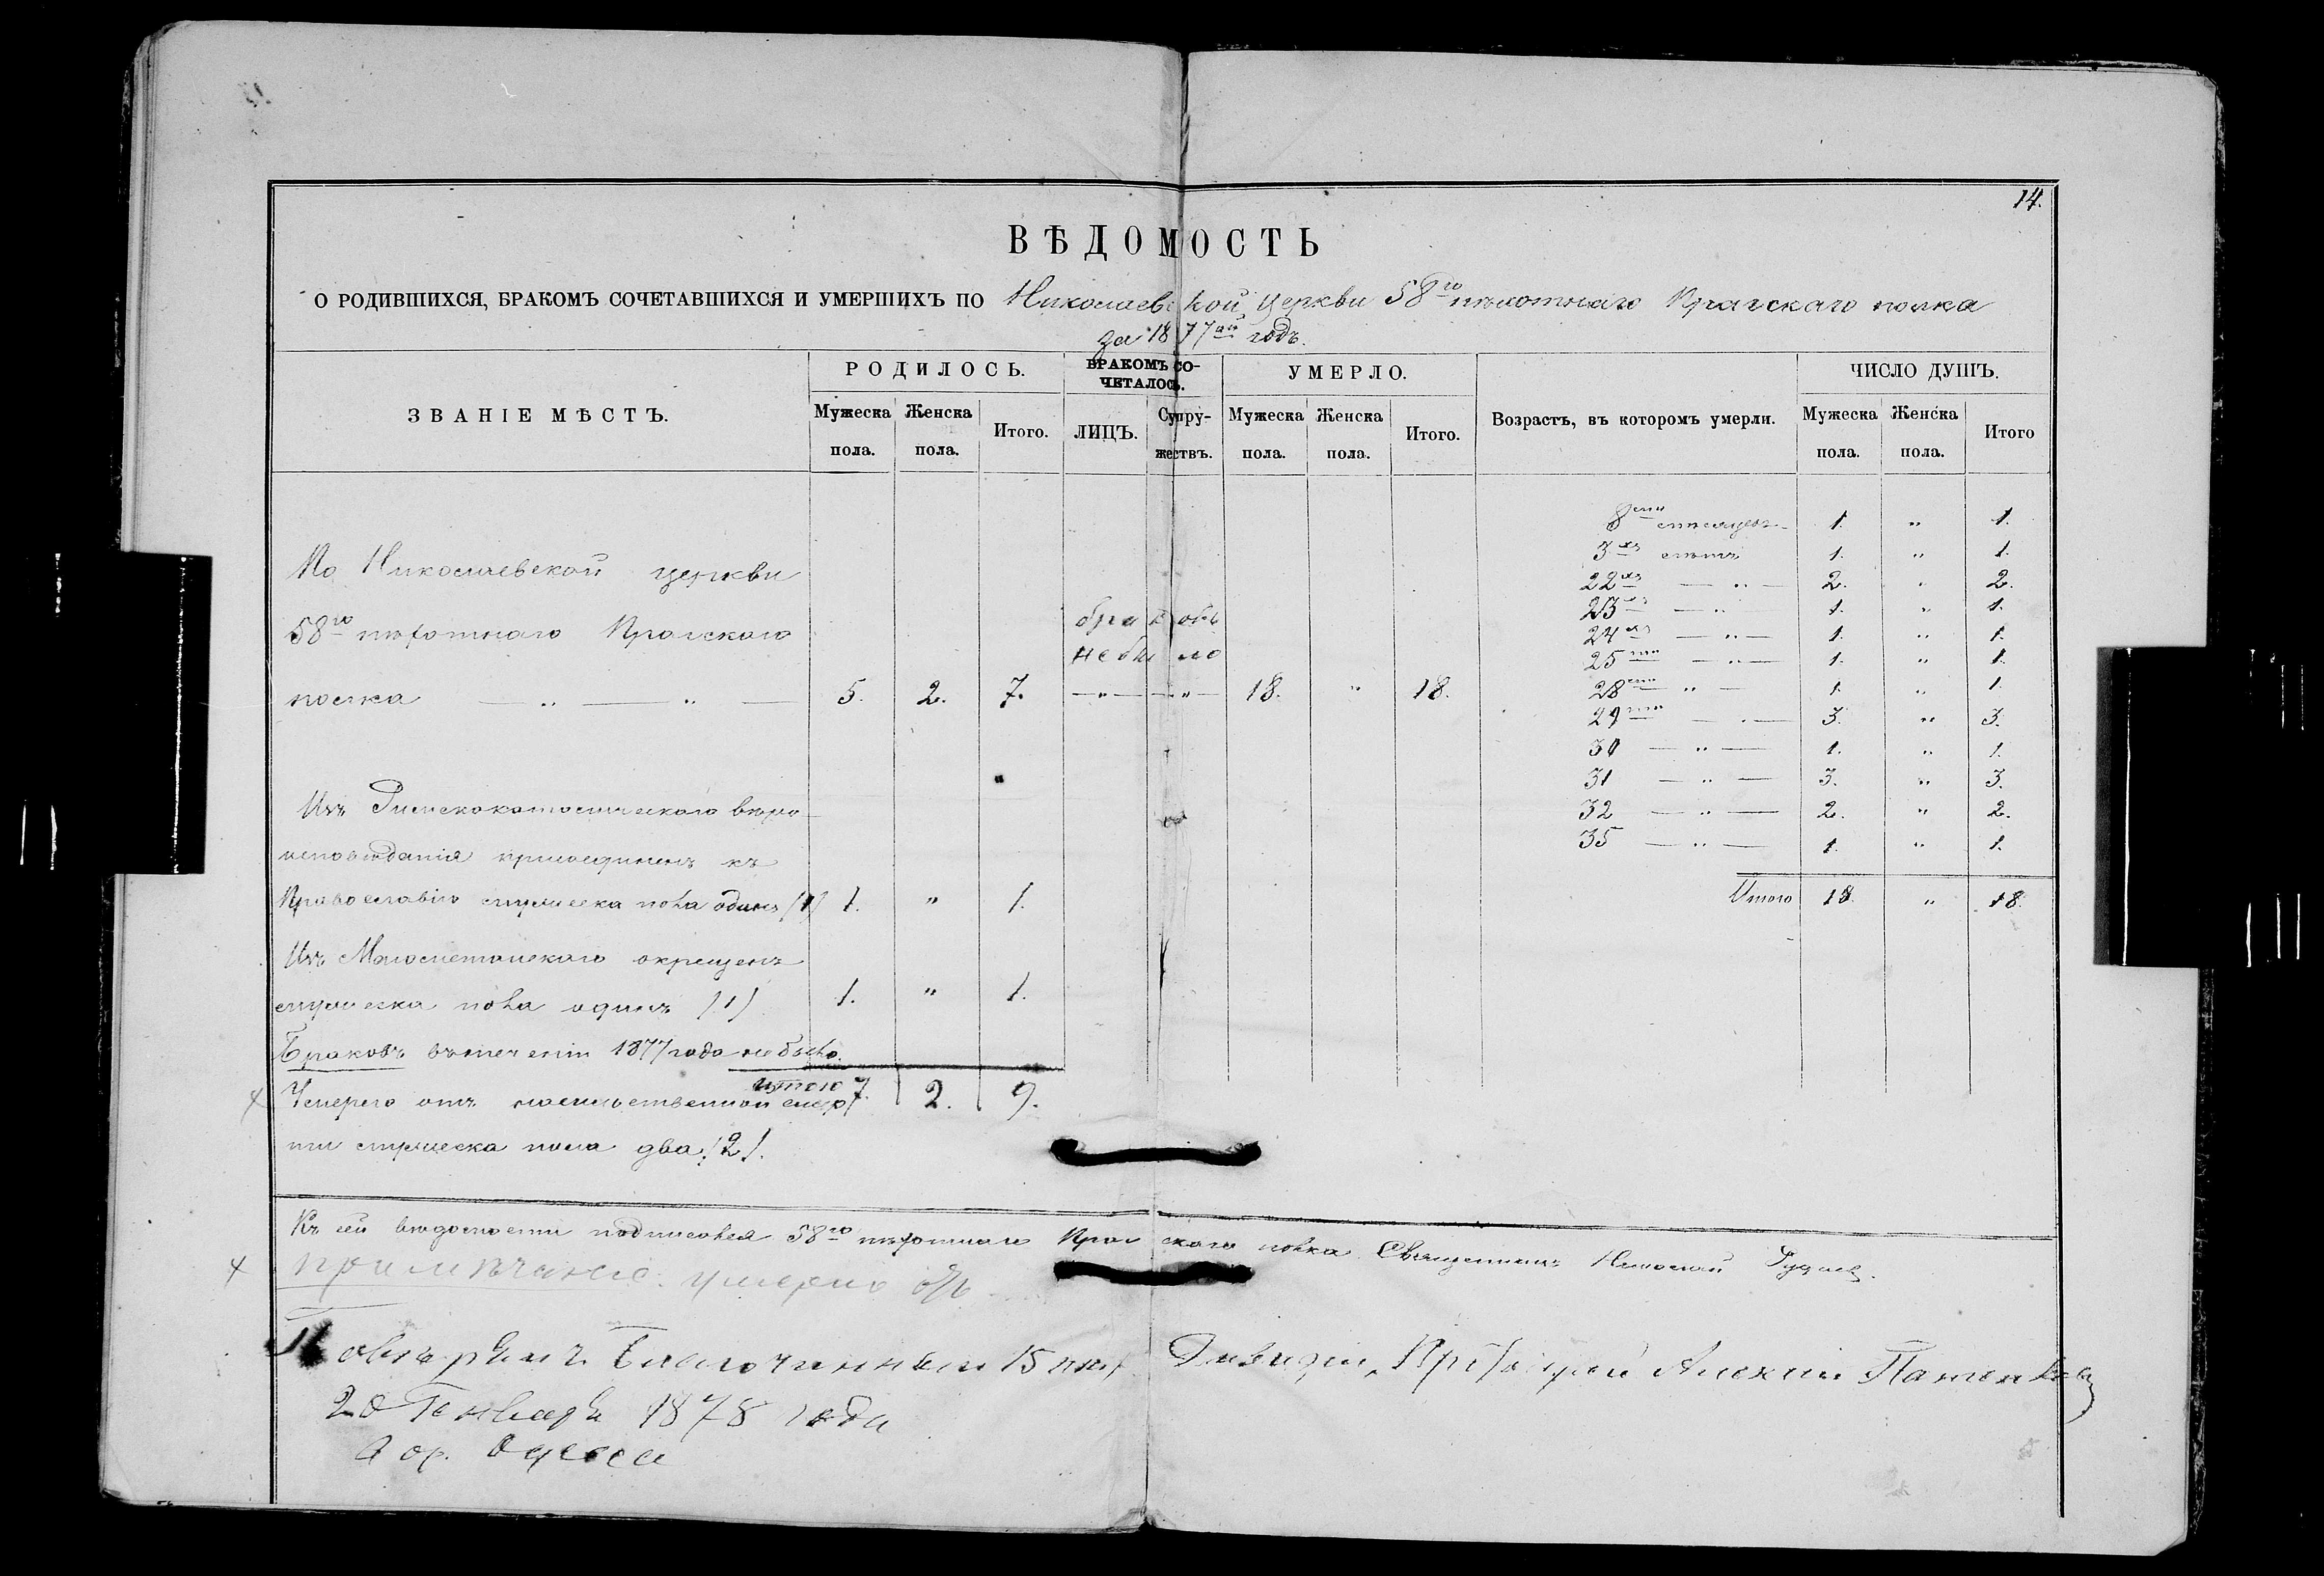 14.
ВѢДОМОСТЬ
О РОДИВШИХСЯ, БРАКОМЪ СОЧЕТАВШИХСЯ И УМЕРШИХЪ ПО Николаевской церкви 58го пѣхотнаго Прагскаго полка
за 1877ой годъ.
ЗВАНІЕ МѢСТЪ.
РОДИЛОСЬ.
БРАКОМЪ СО-
ЧЕТАЛОСЬ.
УМЕРЛО.
Возрастъ, въ которомъ умерли.
ЧИСЛО ДУШЪ.
Мужеска пола. Женска пола. Итого.
ЛИЦЪ. Супру-
жествъ.
Мужеска пола. Женска пола. Итого.
Мужеска пола. Женска пола. Итого
По Николаевской церкви
58го пѣхотнаго Прагскаго
полка — „ — „ — 5. 2. 7.
браковъ
небыло
— „ — — „ — 18. „ 18.
8ми мѣсяцевъ 1. „ 1.
3хъ лѣтъ 1. „ 1.
22хъ — „ — 2. „ 2.
23хъ — „ 1. „ 1.
24хъ — „ — 1. „ 1.
25ти — „ — 1. „ 1.
28ми — „ — 1. „ 1.
29ти — „ — 3. „ 3.
30 — „ — 1. „ 1.
31 — „ — 3. „ 3.
32 — „ — 2. „ 2.
35 — „ — 1. „ 1.
Итого 18. „ 18.
Изъ Римскокатолическаго вѣро-
исповѣданія присоединенъ къ
Православію мужеска пола одинъ (1) 1. „ 1.
Изъ Магометанскаго окрещенъ
мужеска пола одинъ (1) 1. „ 1.
Браковъ втеченіи 1877 года не было.
итого 7. 2. 9.
Умерло отъ насильственной смер
ти мужеска пола два (2).
Къ сей вѣдомости подписался 58го пѣхотнаго Прагскаго полка Священникъ Николай
примѣчаніе: умерло
Повѣрялъ Благочинный 15 пѣх. Дивизіи, Протоіерей Алексій
20 Генваря 1878 года
гор. Одесса